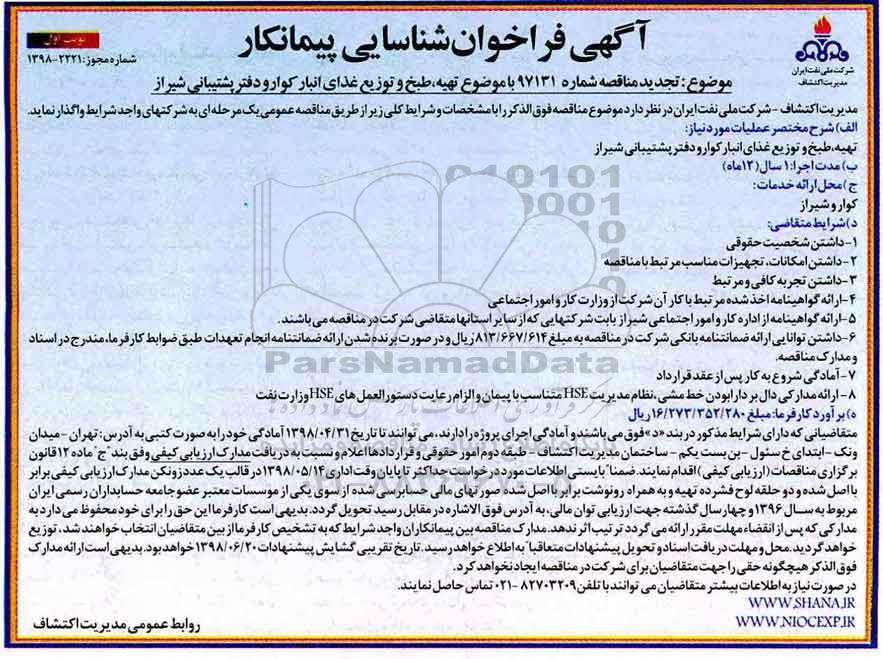 آگهی فراخوان شناسایی پیمانکار
نوبت اول
شماره مجوز: ۲۲۲۱-۱۳۹۸
شرکت ملی نفت ایران
مدیریت اکتشاف
موضوع: تجدید مناقصه شماره ۹۷۱۳۱ با موضوع تهیه، طبخ و توزیع غذای انبار کوار و دفتر پشتیبانی شیراز
مدیریت اکتشاف - شرکت ملی نفت ایران در نظر دارد موضوع مناقصه فوق الذکر را با مشخصات و شرایط کلی زیر از طریق مناقصه عمومی یک مرحله ای به شرکتهای واجد شرایط واگذار نماید.
الف) شرح مختصر عملیات مورد نیاز:
تهیه، طبخ و توزیع غذای انبار کوار و دفتر پشتیبانی شیراز
ب) مدت اجرا: ۱ سال (۱۲ ماه)
ج) محل ارائه خدمات:
کوار و شیراز
د) شرایط متقاضی:
۱- داشتن شخصیت حقوقی
۲- داشتن امکانات، تجهیزات مناسب مرتبط با مناقصه
۳- داشتن تجربه کافی و مرتبط
۴- ارائه گواهینامه اخذ شده مرتبط با کار آن شرکت از وزارت کار و امور اجتماعی
۵- ارائه گواهینامه از اداره کار و امور اجتماعی شیراز بابت شرکتهایی که از سایر استانها متقاضی شرکت در مناقصه می باشند.
۶- داشتن توانایی ارائه ضمانتنامه بانکی شرکت در مناقصه به مبلغ ۸۱۳/۶۶۷/۶۱۴ ریال و در صورت برنده شدن ارائه ضمانتنامه انجام تعهدات طبق ضوابط کارفرما، مندرج در اسناد
و مدارک مناقصه.
۷- آمادگی شروع به کار پس از عقد قرارداد
۸- ارائه مدارکی دال بر دارا بودن خط مشی، نظام مدیریت HSE متناسب با پیمان و الزام رعایت دستورالعمل های HSE وزارت نفت
ه) برآورد کارفرما: مبلغ ۱۶/۲۷۳/۳۵۲/۲۸۰ ریال
متقاضیانی که دارای شرایط مذکور در بند «د» فوق می باشند و آمادگی اجرای پروژه را دارند، می توانند تا تاریخ ۱۳۹۸/۰۴/۳۱ آمادگی خود را به صورت کتبی به آدرس: تهران - میدان
ونک - ابتدای خ سئول - بن بست یکم - ساختمان مدیریت اکتشاف - طبقه دوم امور حقوقی و قراردادها اعلام و نسبت به دریافت مدارک ارزیابی کیفی وفق بند "ج" ماده ۱۲ قانون
برگزاری مناقصات (ارزیابی کیفی) اقدام نمایند. ضمنا" بایستی اطلاعات مورد درخواست حداکثر تا پایان وقت اداری ۱۳۹۸/۰۵/۱۴ در قالب یک عدد زونکن مدارک ارزیابی کیفی برابر
با اصل شده و دو حلقه لوح فشرده تهیه و به همراه رونوشت برابر با اصل شده صورتهای مالی حسابرسی شده از سوی یکی از موسسات معتبر عضو جامعه حسابداران رسمی ایران
مربوط به سال ۱۳۹۶ و چهار سال گذشته جهت ارزیابی توان مالی، به آدرس فوق الاشاره در مقابل رسید تحویل گردد. بدیهی است کارفرما این حق را برای خود محفوظ می دارد به
مدارکی که پس از انقضاء مهلت مقرر ارائه می گردد ترتیب اثر ندهد. مدارک مناقصه بین پیمانکاران واجد شرایط که به تشخیص کارفرما از بین متقاضیان انتخاب خواهند شد، توزیع
خواهد گردید. محل و مهلت دریافت اسناد و تحویل پیشنهادات متعاقبا" به اطلاع خواهد رسید. تاریخ تقریبی گشایش پیشنهادات ۱۳۹۸/۰۶/۲۰ خواهد بود. بدیهی است ارائه مدارک
فوق الذکر هیچگونه حقی را جهت متقاضیان برای شرکت در مناقصه ایجاد نخواهد کرد.
در صورت نیاز به اطلاعات بیشتر متقاضیان می توانند با تلفن ۸۲۷۰۳۲۰۹-۰۲۱ تماس حاصل نمایند.
WWW.SHANA.IR
WWW.NIOCEXP.IR
روابط عمومی مدیریت اکتشاف
ParsNamadData